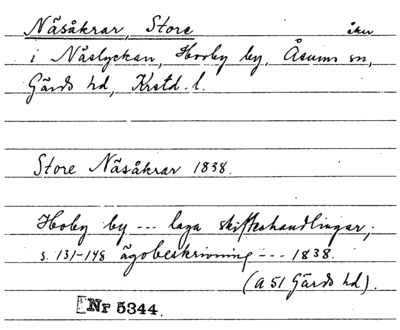 Näsåkrar, Store åker
i Näslyckan, Hovby by, Åsums sn,
Gärds hd, Krstd. l.
Store Näsåkrar 1838.
Hovby by --- laga skifteshandlingar,
s. 131-148 ägobeskrivning --- 1838.
(A 51 Gärds hd).
Nr 5344.